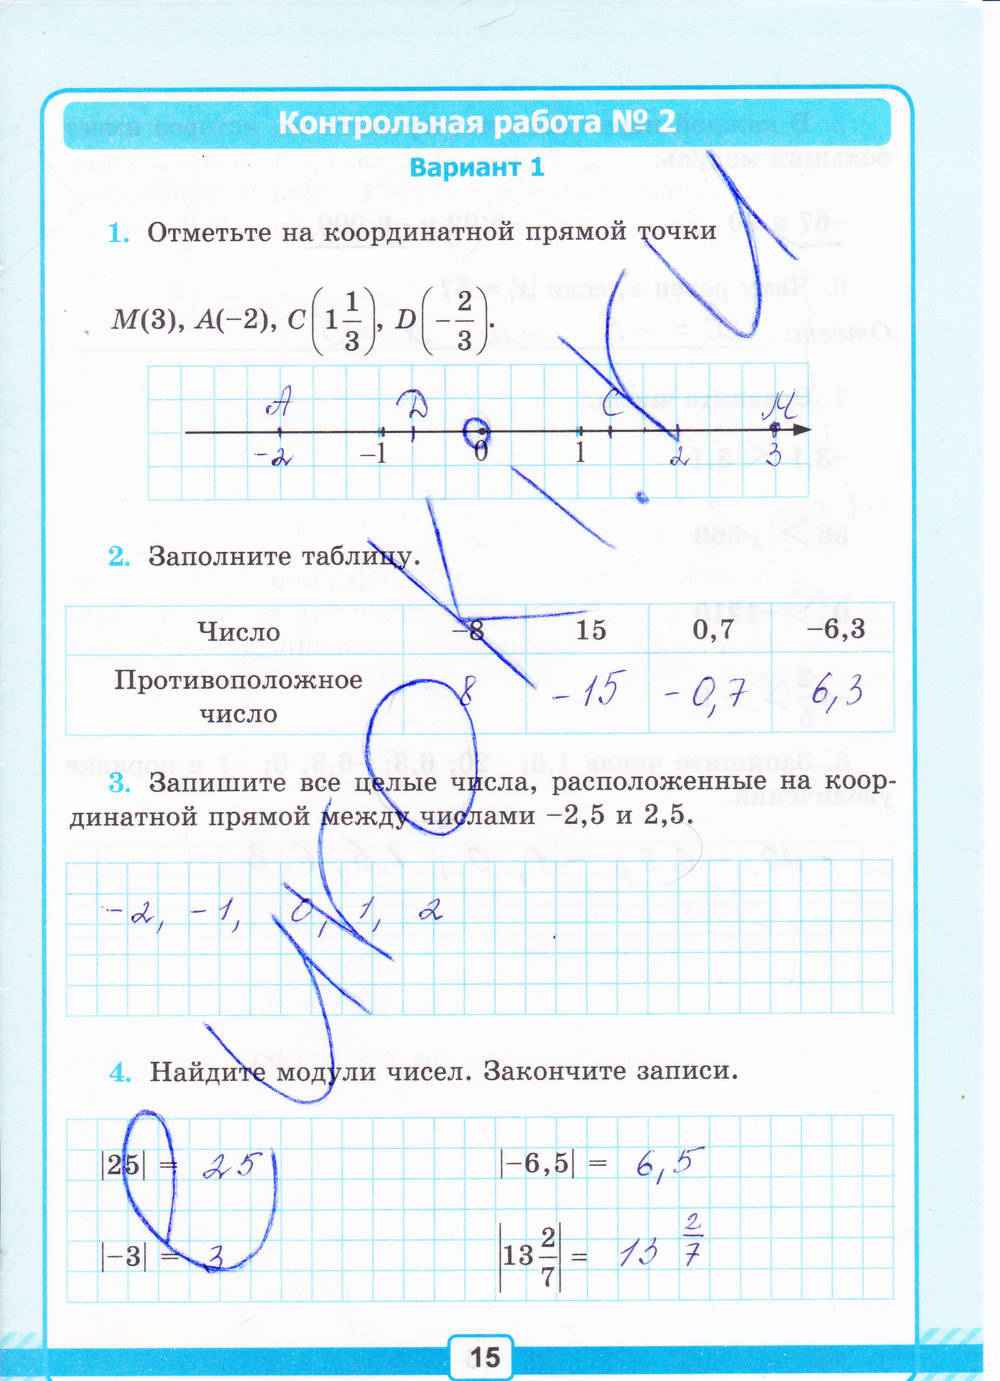 Контрольная работа № 2
Вариант 1
1. Отметьте на координатной прямой точки
M(3), A(−2), C(1 1/3), D(−2/3).
A D C M
−2 −1 0 1 2 3
2. Заполните таблицу.
Число −8 15 0,7 −6,3
Противоположное число 8 −15 −0,7 6,3
3. Запишите все целые числа, расположенные на коор-
динатной прямой между числами −2,5 и 2,5.
−2, −1, 0, 1, 2
4. Найдите модули чисел. Закончите записи.
|25| = 25 |−6,5| = 6,5
|−3| = 3 |13 2/7| = 13 2/7
15